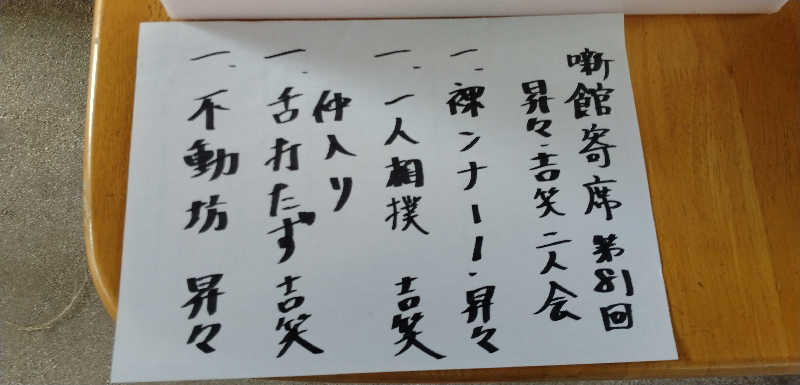 噺館寄席 第81回
昇々・吉笑 二人会
一、裸ンナー!・昇々
一、一人相撲 吉笑
仲入り
一、舌打たず 吉笑
一、不動坊 昇々